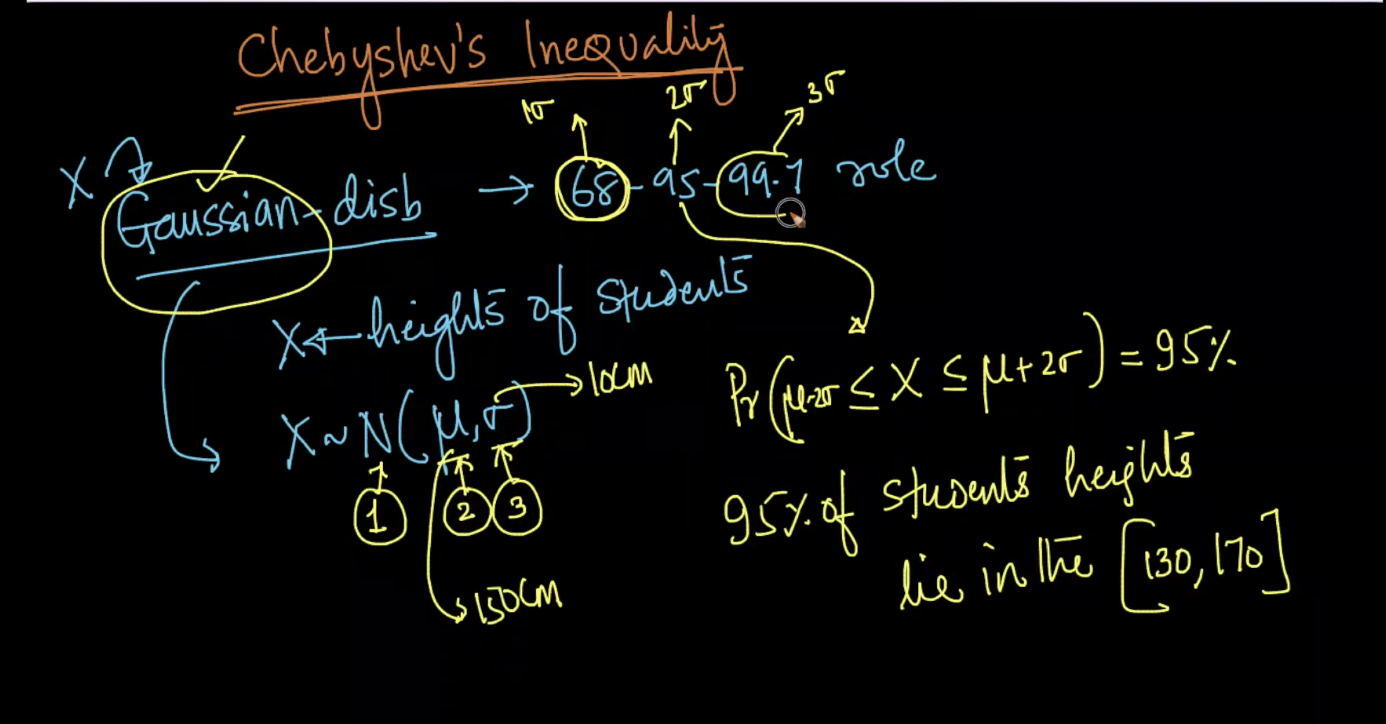 Chebyshev's Inequality
1σ 2σ 3σ
X
Gaussian-disb → 68-95-99.7 rule
X ← heights of students
→ 10cm
X ~ N(μ,σ)
Pr(μ-2σ ≤ X ≤ μ+2σ) = 95%
1 2 3
95% of students heights
lie in the [130,170]
150cm